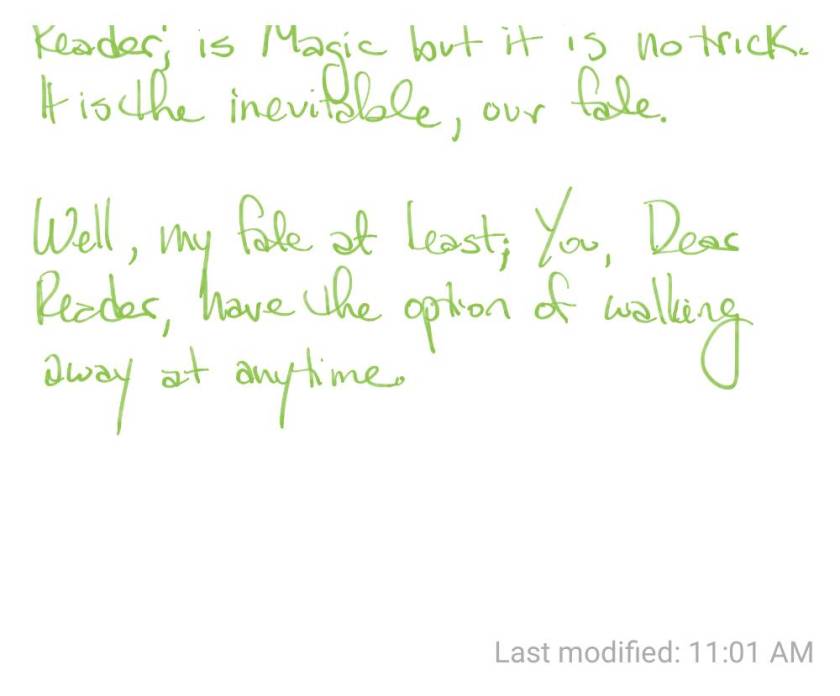 Reader; is Magic but it is no trick.
It is the inevitable, our fate.
Well, my fate at least; You, Dear
Reader, have the option of walking
away at anytime.
Last modified: 11:01 AM